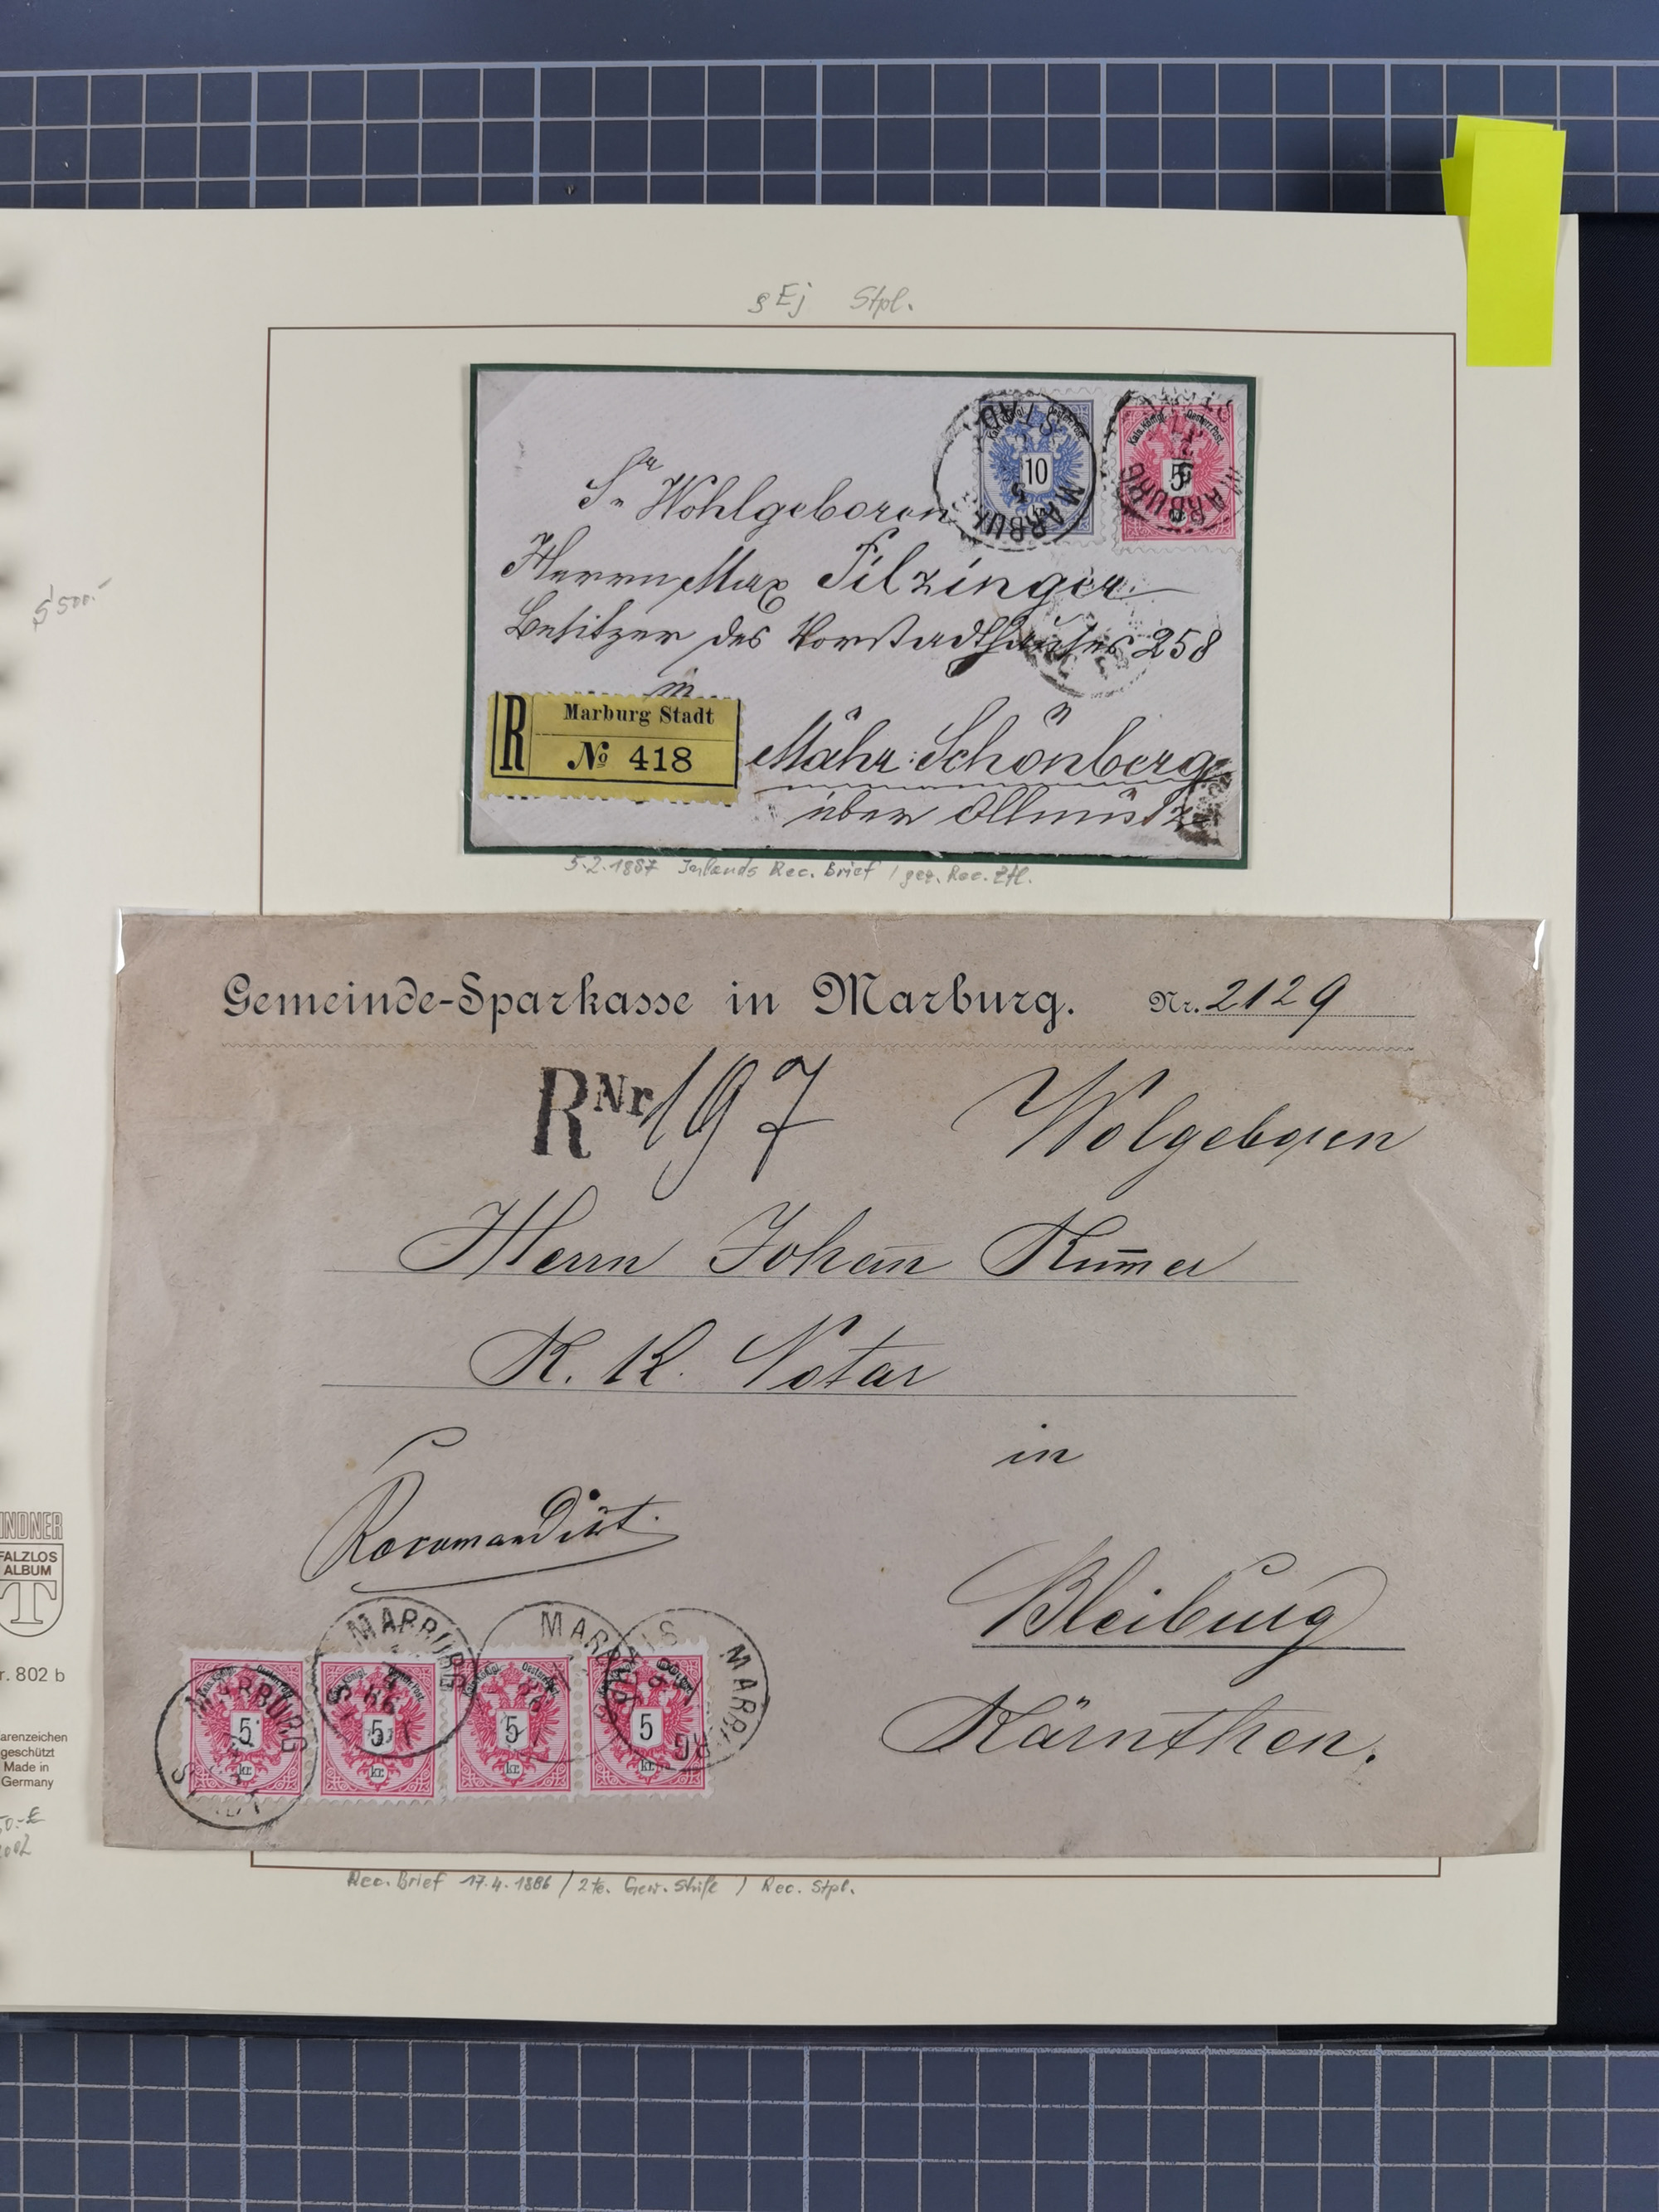 Stpl.
S 500.-
10
5
MARBURG
Sr Wohlgeboren
Herrn Max Filzinger
Besitzer des Vorstadthauses 258
in
R Marburg Stadt
No 418
Mähr: Schönberg
über Ollmütz
5.2.1887 Inlands Rec. Brief / gez. Rec. Ztl.
Gemeinde-Sparkasse in Marburg. Nr. 2129
RNr 197
Wolgeboren
Herrn Johan̄ Kum̄er
K. K. Notar
in
Recomandirt.
Bleiburg
Kärnthen.
MARBURG
MARBURG
5 kr.
5 kr.
5 kr.
5 kr.
86
Rec. Brief 17.4.1886 / 2te. Gew. Stufe / Rec. Stpl.
INDNER
FALZLOS
ALBUM
T
r. 802 b
arenzeichen
geschützt
Made in
Germany